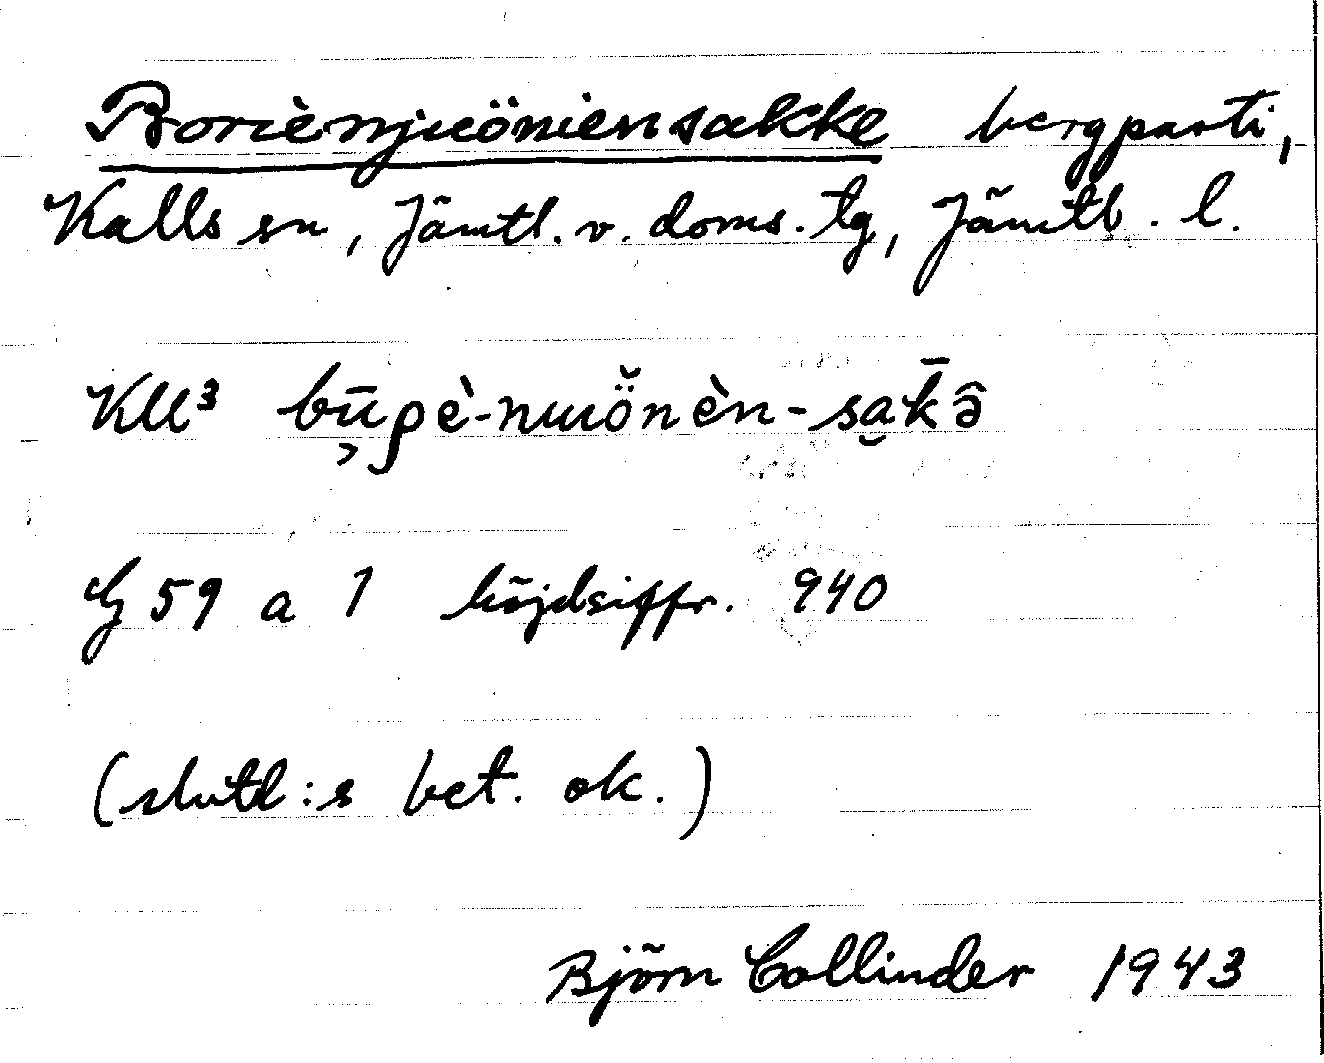 Borienjuöniensakke bergparti,
Kalls sn, Jämtl. v. doms. tg, Jämtl. l.
Kll³ bū̦ρè-nɯɯö̆nèn-sa̮k̄ə̂
G 59 a 1 höjdsiffr. 940
(slutl:s bet. ok.)
Björn Collinder 1943